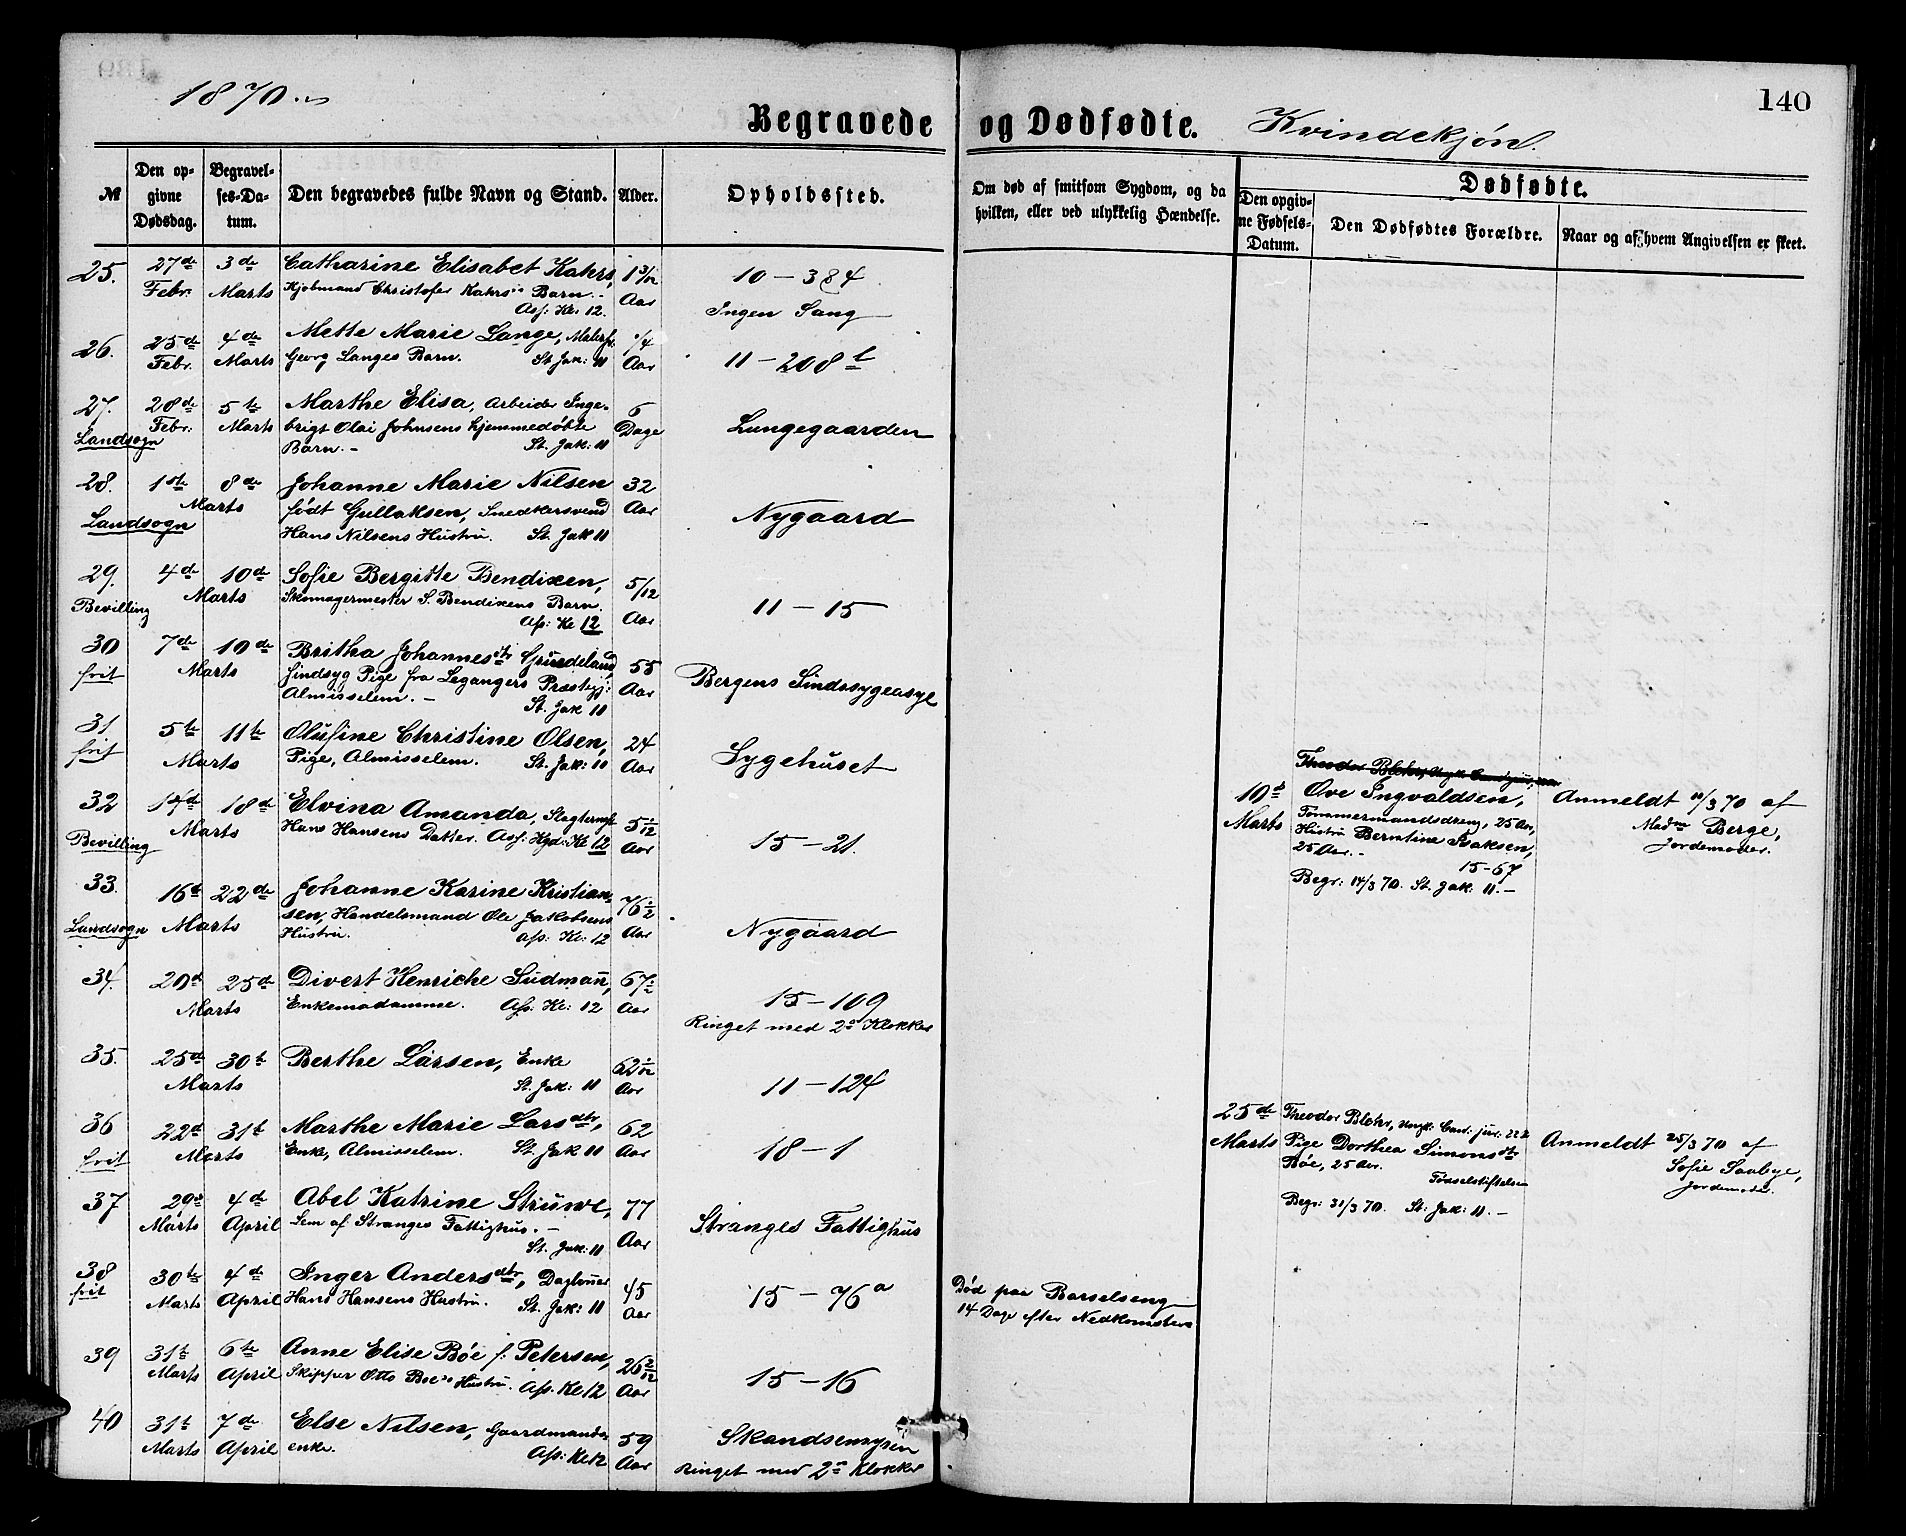 1870.
Begravede og Dødfødte. Kvindekjøn.
140
№
Den opgivne Dødsdag.
Begravelses-Datum.
Den begravedes fulde Navn og Stand.
Alder.
Opholdssted.
Om død af smitsom Sygdom, og da
hvilken, eller ved ulykkelig Hændelse.
Dødfødte.
Den opgivne Fødsels-Datum.
Den Dødfødtes Forældre.
Naar og af hvem Angivelsen er skeet.
25. 27de 3de Catharine Elisabet Kahrs, 1 3/12 10 – 384
Febr. Marts Kjøbmand Christofer Kahrs's Barn. – Aar
Ass: Kl: 12. Ingen Sang
26. 25de 4de Mette Marie Lange, 1/4
Febr. Marts Georg Langes Barn. St. Jak: 11 Aar 11 – 208 b
27. 28de 5te Marthe Elisa, Arbeider Inge- 6
Febr: Marts brigt Olai Johnsens hjemmedøbte Dage Lungegaarden
Landsogn Barn. – St. Jak: 11
28. 1ste 8de Johanne Marie Nilsen 32
Marts født Gullaksen, Snedkersvend Aar Nygaard
Landsogn Hans Nilsens Hustru. St. Jak 11
29. 4de 10de Sofie Bergitte Bendixen, 5/12
Bevilling Marts Skomagermester S. Bendixens Barn. 11 – 15
Ass: Kl 12 Aar
30 7de 10de Britha Johannesdtr 55
frit Marts sindsyg Pige fra Legangers Præstegj: Aar Bergens Sindssygeasyl
Almisselem. – St. Jak 11
31 5te 11te Olufine Christine Olsen, 24
frit Marts Pige, Almisselem. St. Jak: 11 Aar Sygehuset
32 14de 18de Elvina Amanda, Slagterm 5 1/12
Marts Hans Hansens Datter. Ass: Kgd: Kl 12 Aar 15 – 21.
Bevilling
33. 16de 22de Johanne Karine Kristian- 76 1/2
Landsogn Marts sen, Handelsmand Ole Jakobsens Aar Nygaard
Hustru. Ass: Kl: 12
34. 20de 25de Divert Henriche Sudmann, 67 1/2
Marts Enkemadamme. Ass: Kl: 12 Aar 15 – 109
Ringet med 2de Klokker
35. 25de 30te Berthe Larsen, Enke 62 1/12
Marts St. Jak: 11 Aar 11 – 124
36 22de 31te Marthe Marie Larsdtr, 62
frit Marts Enke, Almisselem. St. Jak 11 Aar 18 – 1
37 29de 4de Abel Katrine Struwe, 77
Marts April Lem af Stranges Fattighus. – Stranges Fattighus
St. Jak: 11 Aar
38 30te 4de Inger Andersdtr, Daglønner 45 15 – 76 a
frit Marts April Hans Hansens Hustru. St. Jak: 11 Aar
Død paa Barselseng
14 Dage efter Nedkomsten
39 31te 6te Anne Elise Böe f: Petersen, 26 2/12
Marts April Skipper Otto Boes Hustru. Ass. Kl 12 Aar 15 – 16
40 31te 7de Else Nilsen, Gaardmands- 59
Marts April enke. Ass: Kl 12 Aar
Ringet med 2de Klokker
10de Ove Ingvaldsen, Anmeldt 11/3 70 af
Marts Tømmermandsdreng, 25 Aar, Madm Berge,
Hustru Berntine Isaksen, Jordemoder.
25 Aar. –
15–67
Begr: 14/3 70. St. Jak: 11. –
25de Theodor Blehr, Cand: jur:
Marts Pige Dorthea Simonsdtr Anmeldt 25/3 70 af
Bøe, 25 Aar. Sofie Saabye,
Fødselstiftelsen Jordemoder.
Begr: 31/3 70. St: Jak: 11. –